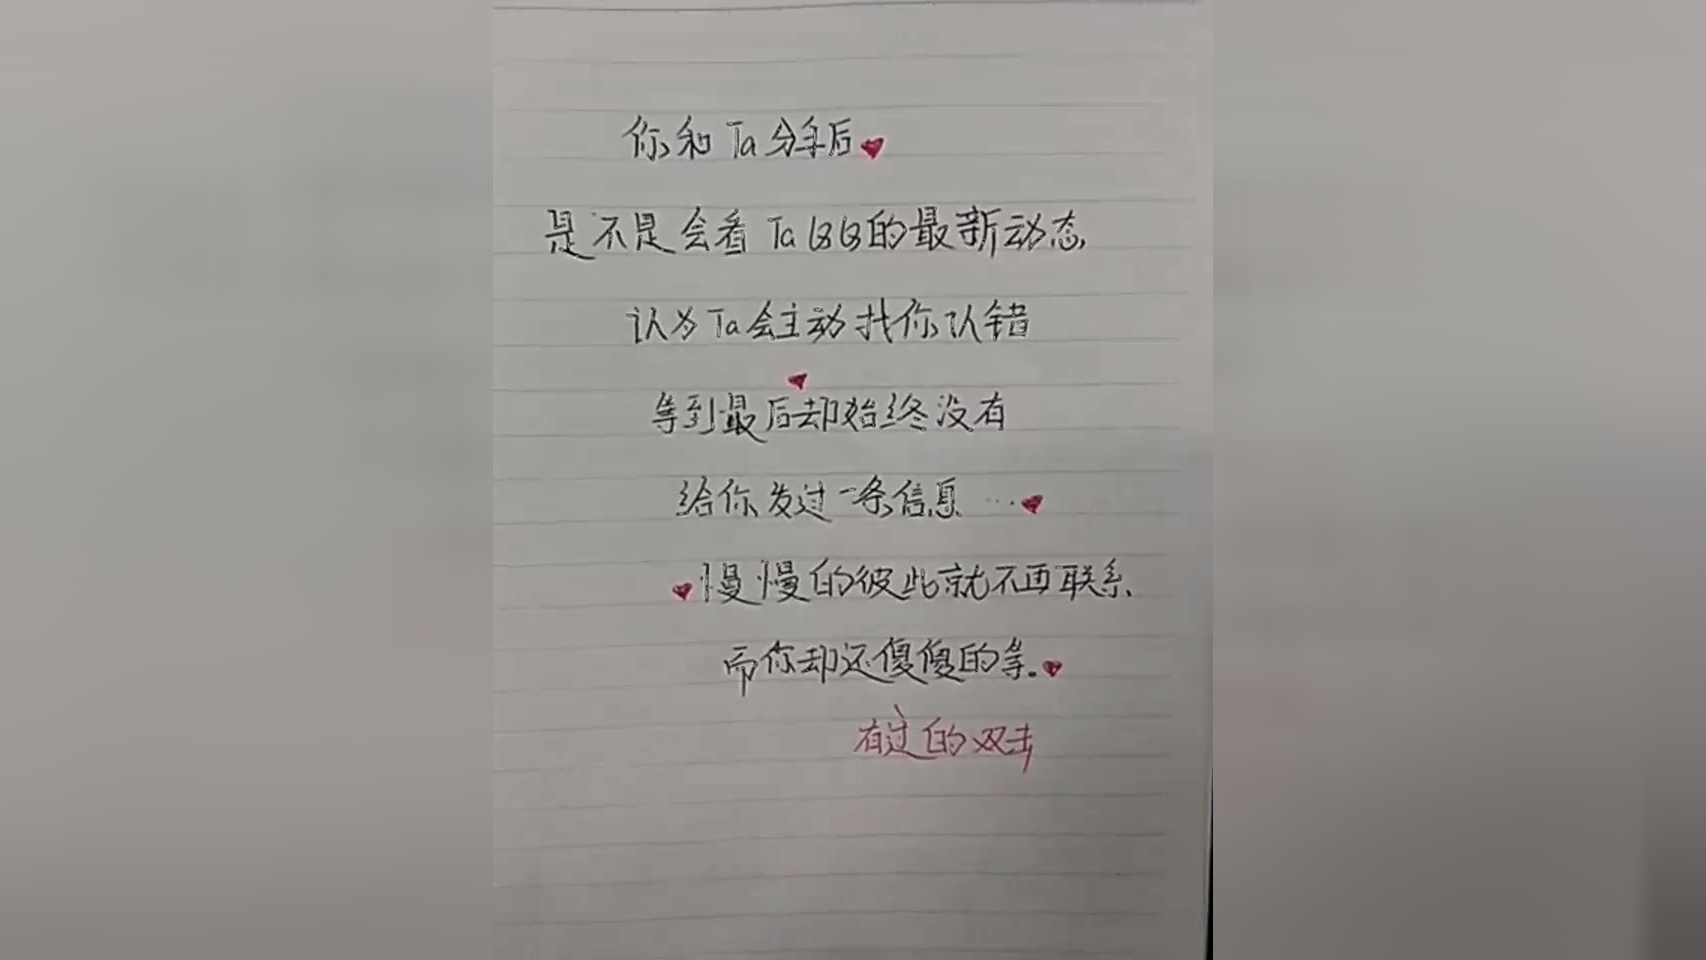 你和Ta分手后
是不是会看TaQQ的最新动态
认为Ta会主动找你认错
等到最后却始终没有
给你发过一条信息…
慢慢的彼此就不再联系
而你却还傻傻的等.
有过的双击